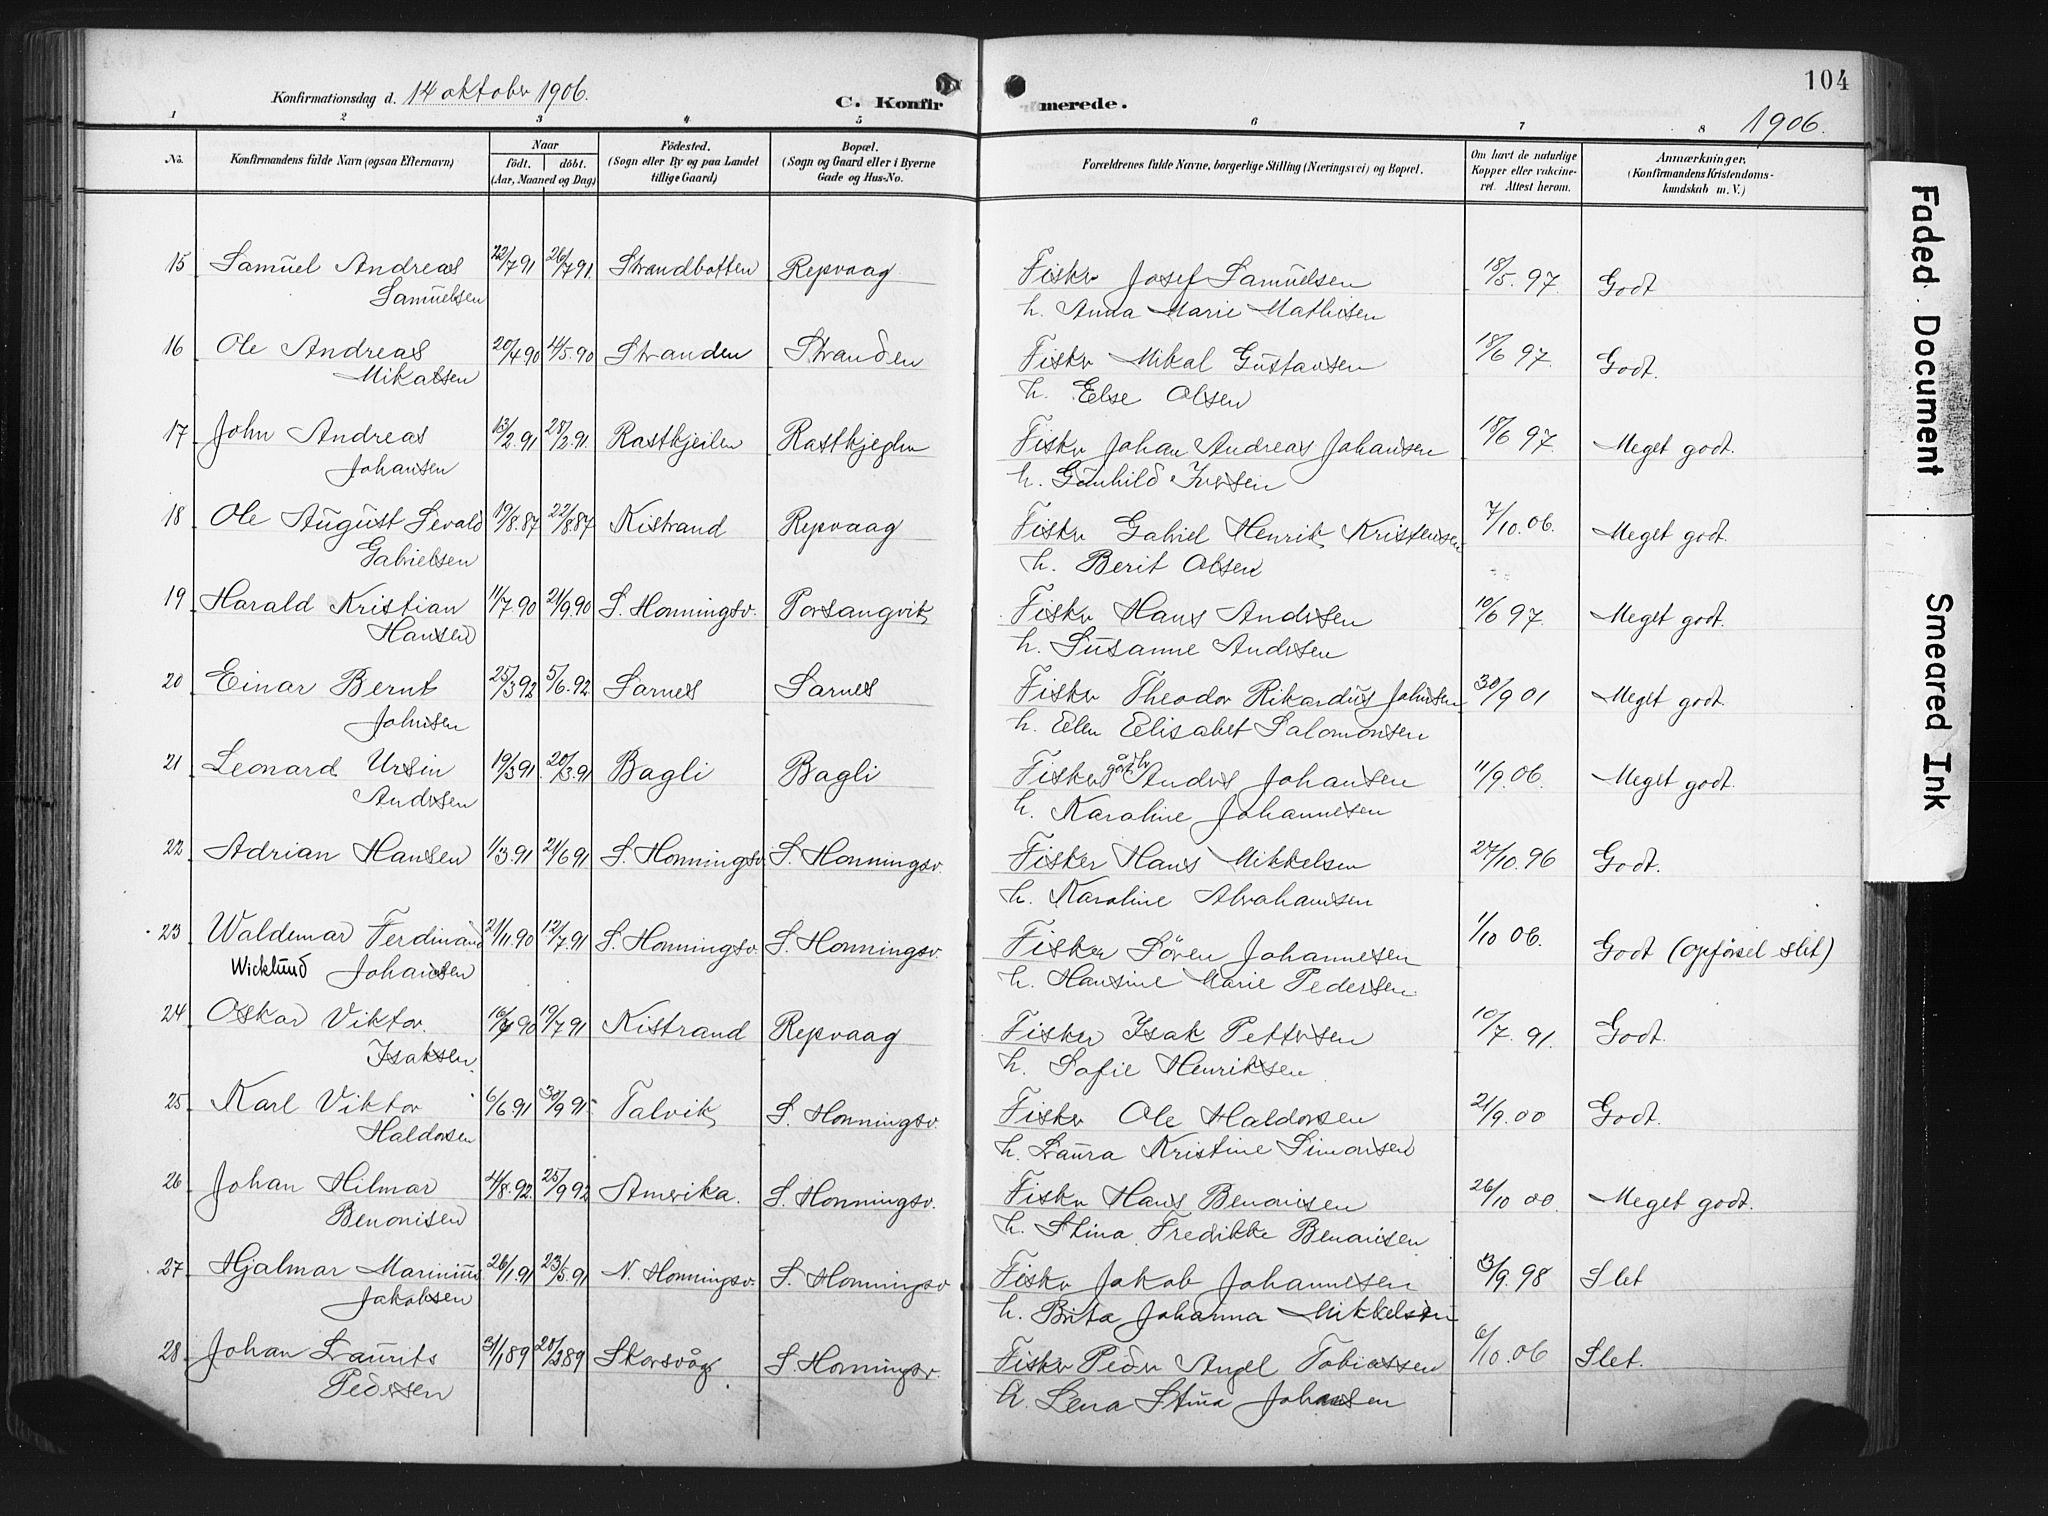 104
Konfirmationsdag d. 14 oktober 1906. C. Konfirmerede. 1906.
1 2 3 4 5 6 7 8
No. Konfirmandens fulde Navn (ogsaa Efternavn) Naar født. døbt. (Aar, Maaned og Dag) Fødested. (Sogn eller By og paa Landet tillige Gaard) Bopæl. (Sogn og Gaard eller i Byerne Gade og Hus-No. Forældrenes fulde Navne, borgerlige Stilling (Næringsvei) og Bopæl. Om havt de naturlige Kopper eller vakcineret. Attest herom. Anmærkninger. (Konfirmandens Kristendomskundskab m. V.)
15 Samuel Andreas 22/7 91 26/7 91. Strandbotten Repvaag. Fisker Josef Samuelsen 18/5. 97. Godt
Samuelsen h. Anna Marie Mathisen
16 Ole Andreas 20/4 90 4/5.90 Stranden Stranden Fisker Mikal Gustavsen 18/6 97. Godt.
Mikalsen h. Else Olsen
17 John Andreas 13/2.91 28/2 91. Rastkjeilen Rastkjeglen Fisker Johan Andreas Johansen 18/6 97. Meget godt.
Johansen h. Gunhild Iversen
18 Ole August Sevald 19/8.87 22/8.87. Kistrand Repvaag Fisker Gabriel Henrik Kristensen 7/10.06. Meget godt.
Gabrielsen h. Berit Olsen
19 Harald Kristian 11/7.90 21/9.90 S. Honningsv. Porsangvik Fisker Hans Andersen 10/6 97. Meget godt.
Hansen h. Susanne Andersen
20 Einar Bernt 25/3 92 5/6.92 Sarnes Sarnes Fisker Theodor Rikardus Johnsen 30/9 01 Meget godt.
Johnsen h. Elen Elisabet Salomonsen
21 Leonard Ursin 19/3 91. 20/3.91 Bagli Bagli Fisker Anders Johansen 11/9.06. Meget godt.
Andersen h. Karoline Johannesen
22 Adrian Hansen 1/3.91 21/6 91 S. Honningsv. S. Honningsv. Fisker Hans Mikkelsen 27/10.96 Godt.
h. Karoline Abrahamsen
23 Waldemar Ferdinand 21/11.90 12/7.91 S. Honningsv. S. Honningsv. Fisker Sören Johannesen 1/10 06. Godt (opførsel slet)
Wicklund Johansen h. Hansine Marie Pedersen
24 Oskar Viktor. 90 19/7 91 Kistrand Repvaag Fisker Isak Pettersen 10/7. 91. Godt.
Isaksen. h. Sofie Henriksen
25 Karl Viktor 6/6.91 30/9 91 Talvik S. Honningsv. Fisker Ole Haldorsen 21/9.00 Godt.
Haldorsen h. Laura Kristine Simonsen
26 Johan Hilmar 4/8.92. 25/9 92 Amerika. S. Honningsv. Fisker Hans Benonisen 26/10 00. Meget godt.
Benonisen h. Stina Fredikke Benonisen
27 Hjalmar Marinius 26/1.91 23/5.91 N. Honningsv. S. Honningsv Fisker Jakob Johannesen 3/9.98 Slet
Jakobsen h. Brita Johanna Mikkelsen
28 Johan Laurits 31/1 89 89 Skarsvåg S. Honningsv. Fisker Peder Angel Tobiassen 6/10.06 Slet.
Pedersen h. Lena Stina Johansen
Faded Document
Smeared Ink